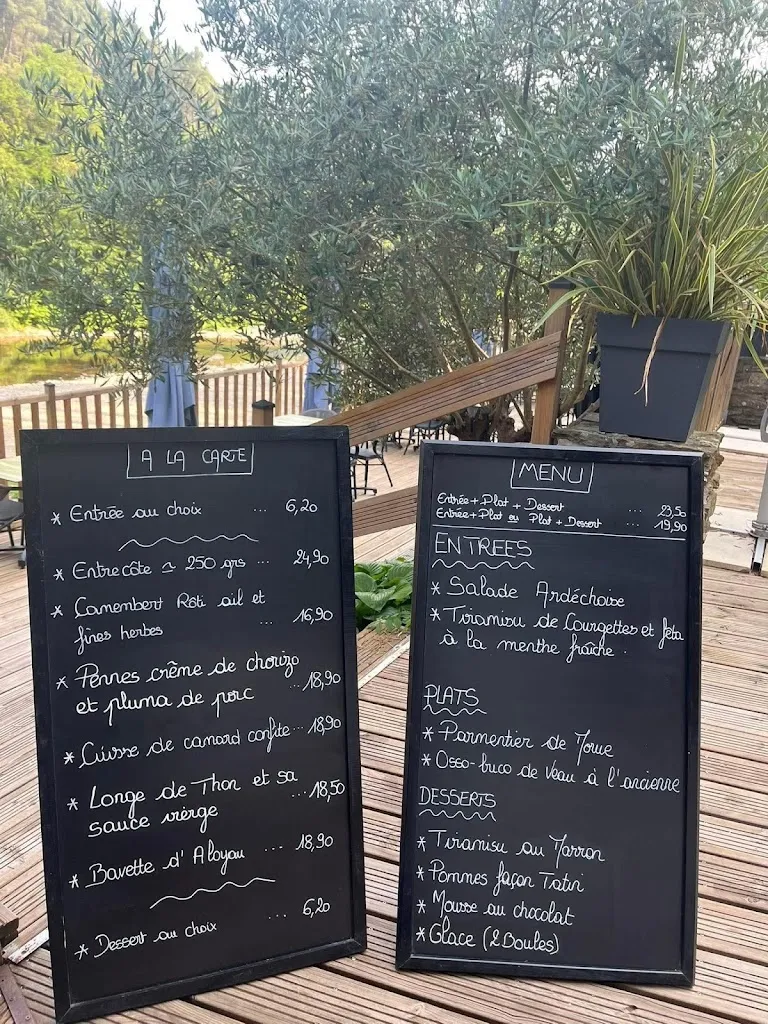 A LA CARTE
* Entrée au choix ... 6,20
* Entrecôte ~ 250 grs ... 24,90
* Camembert Rôti ail et
fines herbes ... 16,90
* Pennes crème de chorizo
et pluma de porc ... 18,90
* Cuisse de canard confite ... 18,90
* Longe de Thon et sa
sauce vierge ... 18,50
* Bavette d'Aloyau ... 18,90
* Dessert au choix ... 6,20
MENU
Entrée + Plat + Dessert ... 23,50
Entrée + Plat ou Plat + Dessert ... 19,90
ENTREES
* Salade Ardéchoise
* Tiramisu de Courgettes et feta
à la menthe fraîche.
PLATS
* Parmentier de Joue
* Osso-buco de Veau à l'ancienne
DESSERTS
* Tiramisu au Marron
* Pommes façon Tatin
* Mousse au chocolat
* Glace (2 Boules)